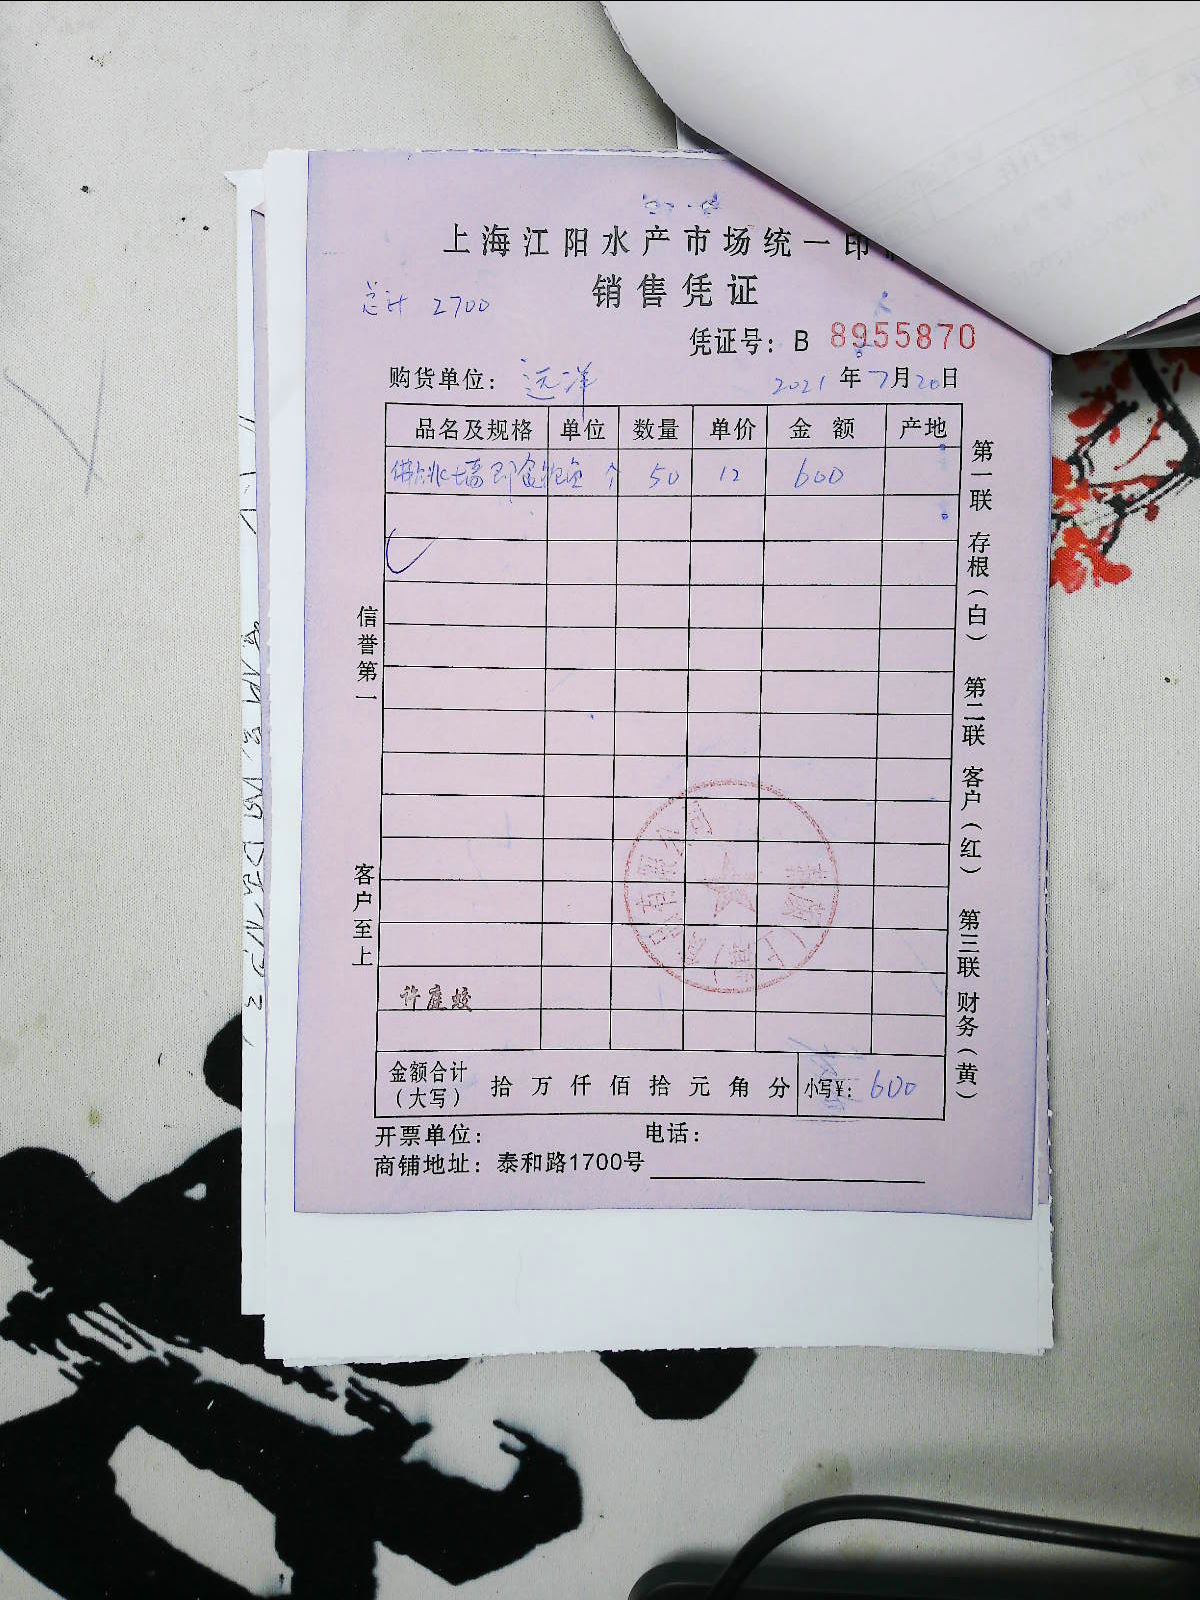 上海江阳水产市场统一印
销售凭证
总计 2700
凭证号: B 8955870
购货单位: 远洋 2021年7月20日
品名及规格 单位 数量 单价 金额 产地
佛跳墙即食鲍鱼 个 50 12 600
信誉第一
客户至上
许庭蛟
金额合计(大写) 拾万仟佰拾元角分 小写¥: 600
开票单位: 电话:
商铺地址: 泰和路1700号
第一联 存根(白) 第二联 客户(红) 第三联 财务(黄)